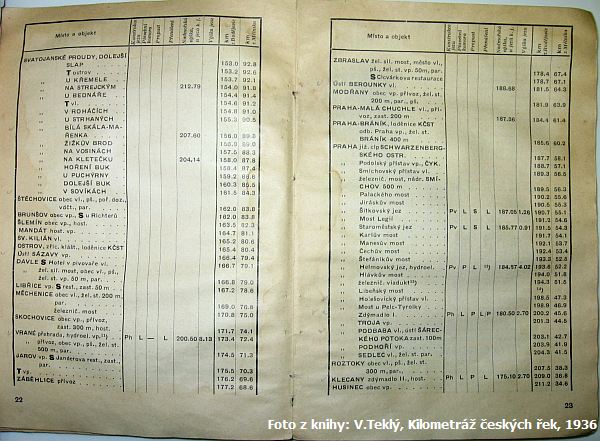 Místo a objekt
SVATOJANSKÉ PROUDY, DOLEJŠÍ
SLAP 153.0 92.8
T ostrov 153.2 92.6
U KŘEMELE 153.7 92.1
NA STREJČKÝM 212.79 154.0 91.8
U BEDNÁŘE 154.4 91.4
T vl. 154.6 91.2
V ROHÁČÍCH 154.8 91.0
U STRHANÝCH 155.3 90.5
BÍLÁ SKÁLA-MA-
ŘENKA 207.60 156.0
ŽIŽKŮV BROD
NA VOSINÁCH 157.5 88.3
NA KLETEČKU 204.14 158.0 87.8
HOŘENÍ BUK 158.4 87.4
U PUCHÝRNY 159.2 86.6
DOLEJŠÍ BUK 160.3 85.5
V SOVÍKÁCH 161.5 84.3
ŠTĚCHOVICE obec vl., pš., poř. doz.,
vočt., par. 162.0 83.8
BRUNŠOV obec vp., S u Richterů 162.0 83.8
ŠLEMÍN obec vp., host. 163.5 82.3
MANDÁT host. vp. 164.7 81.1
SV. KILIÁN vl. 165.2 80.6
OSTROV, zříc. klášt., loděnice KČST 165.4 80.4
Ústí SÁZAVY vp. 166.4 79.4
DAVLE S Hotel v pivovaře vl. 166.7 79.1
žel. sil. most, obec vl., pš.,
žel. st. vp. 50 m, par. 166.8 79.0
LIBŘICE vp. S rest., zast. 50 m 167.2 78.6
MĚCHENICE obec vl., žel. st. 200 m,
par. 169.0 76.8
železniční most 170.8 75.0
SKOCHOVICE obec vp., přívoz,
zast. 300 m, host. 171.7 74.1
VRANÉ přehrada, hydroel. vp.¹¹) Ph L — L 200.50 8.13 173.4 72.4
obec vp., přívoz, pš., žel. st.
500 m, par. 174.5 71.3
JAROV vp. S Sanderova rest., zast.,
par.
T vp. 175.5 70.3
ZÁBĚHLICE přívoz 176.2 69.6
177.2 68.6
22
Místo a objekt
ZBRASLAV žel. sil. most, město vl.,
pš., žel. st. vp. 50m, par. 178.4 67.4
S Cicvárkova restaurace 178.7 67.1
Ústí BEROUNKY vl. 188.68 181.5 64.3
MODŘANY obec vp. přívoz, žel. st.
200 m, par., pš. 181.9 63.9
PRAHA-MALÁ CHUCHLE vl., pří-
voz, zast. 200 m 187.36 184.4 61.4
PRAHA-BRÁNÍK, loděnice KČST
odb. Praha vp., žel. st.
BRÁNÍK 400 m 185.6 60.2
PRAHA již. cíp SCHWARZENBERG-
SKÉHO OSTR. 187.7 58.1
Podolský přístav vp., ČYK. 188.7 57.1
Smíchovský přístav vl. 189.3 56.5
železnič. most, nádr. SMÍ-
CHOV 500 m 189.5 56.3
Palackého most 190.2 55.6
Jiráskův most 190.5 55.3
Šítkovský jez Pv L S L 187.05 1.26 190.7 55.1
Most Legií 191.2 54.6
Staroměstský jez Pv L S L 185.77 0.91 191.5 54.3
Karlův most 191.7 54.1
Manesův most 192.1 53.7
Čechův most 192.4 53.4
Štefánikův most 192.8
Helmovský jez, hydroel. Pv P L ¹²) 184.57 4.02 193.6 52.2
Hlávkův most 194.0 51.8
železnič. viadukt¹³) 194.3 51.5
Libeňský most ¹⁴)
Holešovický přístav vl. 198.5 47.3
Most u Pelc-Tyrolky 198.9
Zdýmadlo I. Ph L P L/P 180.50 2.70 200.2 45.6
TROJA vp. 201.3 44.5
PODBABA vl., ústí ŠÁREC-
KÉHO POTOKA zast. 100m 203.1 42.7
PODHOŘÍ vp. 203.9 41.9
SEDLEC vl., žel. st. par. 204.3 41.5
ROZTOKY obec vl., pš., žel. st.
300 m, par., 207.5 38.3
KLECANY zdýmadlo II., host. Ph L P L 175.10 2.70 209.0 36.8
HUSINEC obec vp. 211.2 34.6
23
Foto z knihy: V.Teklý, Kilometráž českých řek, 1936